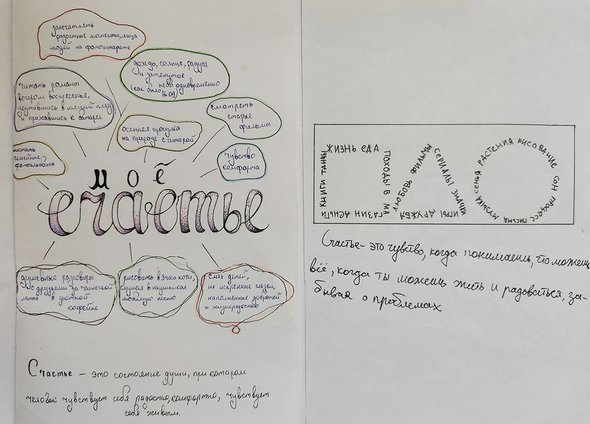 запечатлеть
радостные моменты, лица
людей на фотоаппарате
дождь, солнце, радуга
и закатное
небо одновременно
(как было
читать романы
вечером воскресенья,
укутавшись в мягкий плед
и прижавшись к батарее
осенняя прогулка
на природе с гитарой
смотреть
старые
фильмы
чувство
комфорта
читать
семейные
фотоальбомы
моё
счастье
душевные разговоры
с друзьями за чашечкой
латте в уютной
кофейне
рисовать в эскизах,
слушая в наушниках
любимую песню
смех детей,
их искренние глаза,
наполненные добротой
и жизнерадостью
Счастье – это состояние души, при котором
человек чувствует себя радостно, комфортно, чувствует
себя живым.
КНИГИ ТАНЦЫ ЖИЗНЬ ЕДА ПОХОДЫ В МАГАЗИН ДЕНЬГИ
ИГРЫ ДРУЖБА ЛЮБОВЬ ФИЛЬМЫ СЕРИАЛЫ
МУЗЫКА РАСТЕНИЯ РИСОВАНИЕ СОН ПРОЦЕСС ПИСЬМА
Счастье – это чувство, когда понимаешь, что можешь
всё, когда ты можешь жить и радоваться, за-
бывая о проблемах